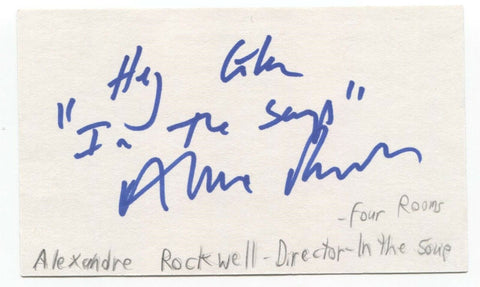 Hey
"In The Soup"
Alexandre Rockwell
- Four Rooms
Alexandre Rockwell - Director - In the Soup